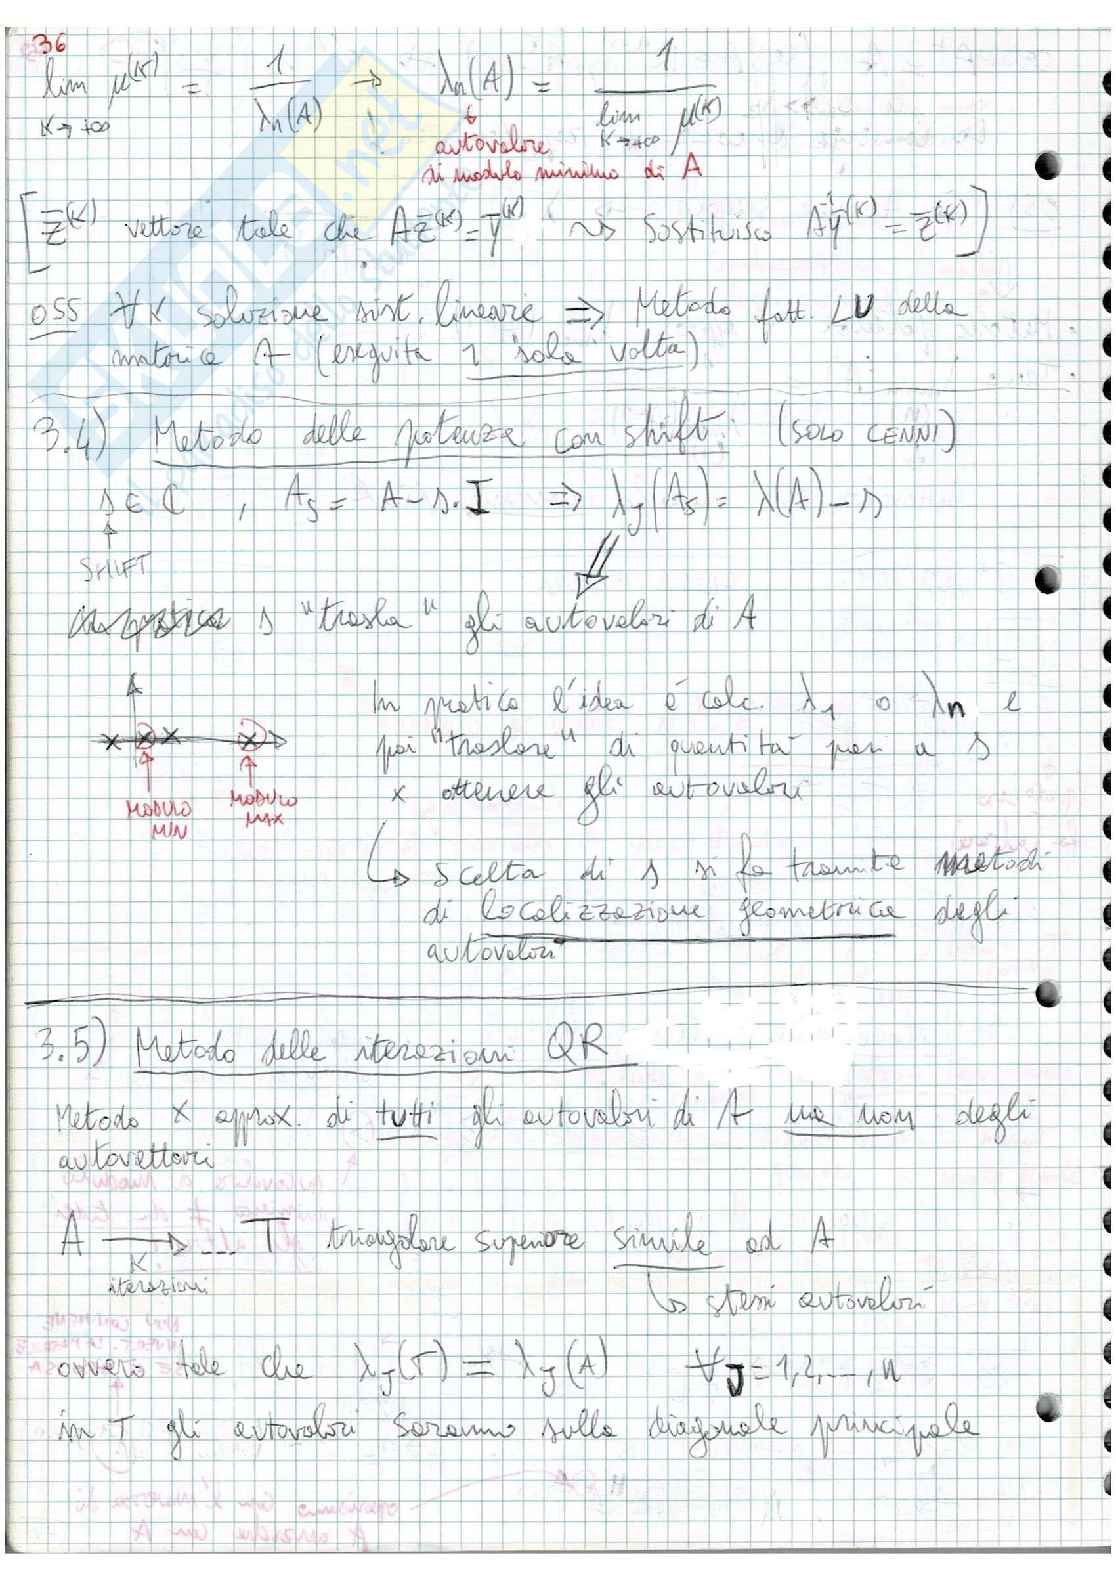 36
lim μ^(K) = 1/λn(A) → λn(A) = 1/lim μ^(K)
K→+∞ K→+∞
autovalore
di modulo minimo di A
[z̄^(K) vettore tale che Az̄^(K) = ȳ^(K) ⇝ Sostituisco A^-1ȳ^(K) = z̄^(K)]
OSS ∀K soluzione sist. lineare ⇒ Metodo fatt. LU della
matrice A (eseguita 1 sola volta)
3.4) Metodo delle potenze con shift. (SOLO CENNI)
s ∈ ℂ , As = A - s·I ⇒ λj(As) = λ(A) - s
SHIFT
s "trasla" gli autovalori di A
In pratica l'idea é calc. λ1 o λn e
poi "traslare" di quantità pari a s
x ottenere gli autovalori
MODULO
MIN
MODULO
MAX
↳ scelta di s si fa tramite metodi
di localizzazione geometrica degli
autovalori
3.5) Metodo delle iterazioni QR
Metodo x approx. di tutti gli autovalori di A ma non degli
autovettori
A → ... T triangolare superiore simile ad A
K
iterazioni
↳ stessi autovalori
ovvero tale che λj(T) = λj(A) ∀J=1,2,...,n
in T gli autovalori saranno sulla diagonale principale